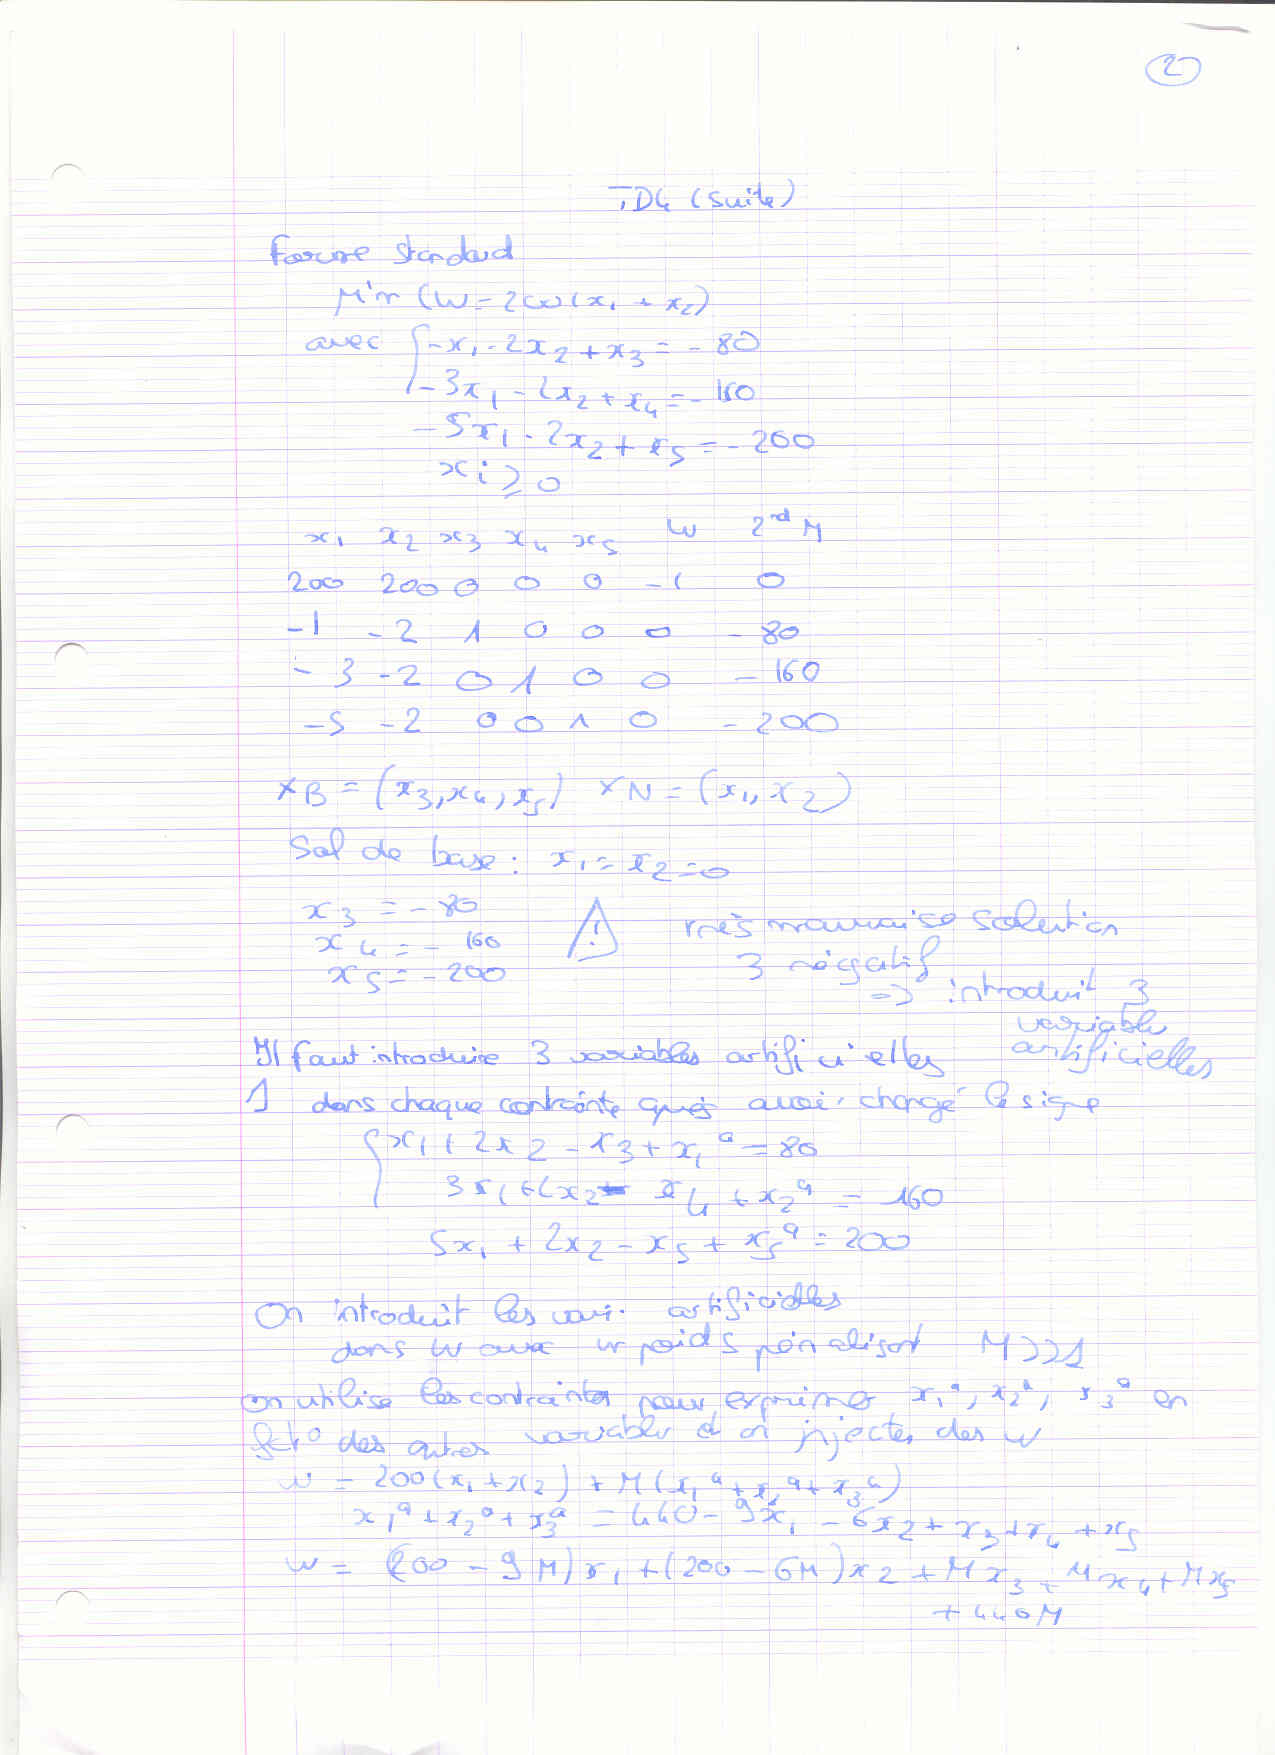 2
TD4 (suite)
Forme standard
Min (W = 200(x₁ + x₂)
avec { -x₁ - 2x₂ + x₃ = - 80
-3x₁ - 2x₂ + x₄ = - 160
-5x₁ - 2x₂ + x₅ = - 200
xi ≥ 0
x₁ x₂ x₃ x₄ x₅ W 2ⁿᵈ M
200 200 0 0 0 -1 0
-1 -2 1 0 0 0 - 80
- 3 -2 0 1 0 0 - 160
-5 -2 0 0 1 0 - 200
XB = (x₃, x₄, x₅) XN = (x₁, x₂)
Sol de base : x₁ = x₂ = 0
x₃ = - 80
x₄ = - 160
x₅ = - 200
! très mauvaise solution
3 négatif
=> introduit 3
variable
artificielles
Il faut introduire 3 variables artificielles
1 dans chaque contrainte après avoir changé le signe
{ x₁ + 2x₂ - x₃ + x₁ᵃ = 80
3x₁ + 2x₂ - x₄ + x₂ᵃ = 160
5x₁ + 2x₂ - x₅ + x₅ᵃ = 200
On introduit les vari. artificielles
dans W avec un poids pénalisant M >>> 1
on utilise les contraintes pour exprimer x₁ᵃ, x₂ᵃ, x₃ᵃ en
fct° des autres variables et on injecte des W
W = 200(x₁ + x₂) + M(x₁ᵃ + x₂ᵃ + x₃ᵃ)
x₁ᵃ + x₂ᵃ + x₃ᵃ = 440 - 9x₁ - 6x₂ + x₃ + x₄ + x₅
W = (200 - 9M)x₁ + (200 - 6M)x₂ + Mx₃ + Mx₄ + Mx₅
+ 440M